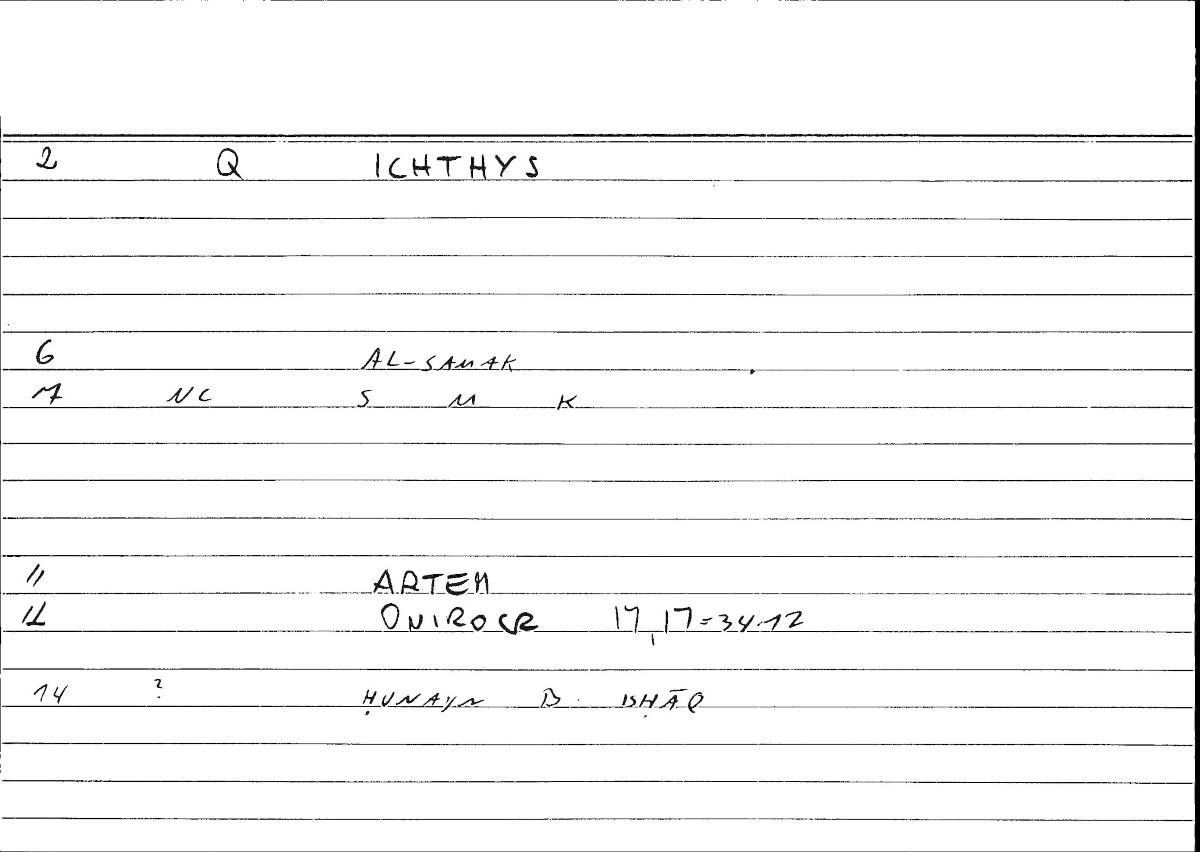 2 Q ICHTHYS
6 AL-SAMAK
7 NC S M K
11 ARTEM
12 ONIROCR 17,17=34.12
14 ? ḤUNAYN B. ISḤĀQ